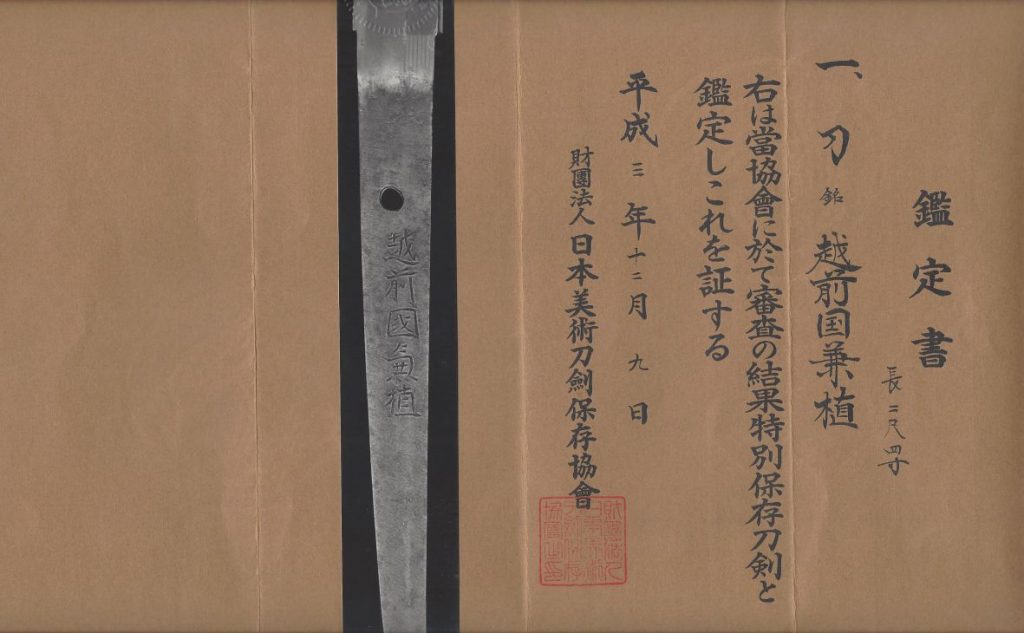 鑑定書
長二尺四寸
一、刀 銘 越前国兼植
右は當協會に於て審査の結果特別保存刀剣と
鑑定しこれを証する
平成三年十二月九日
財團法人日本美術刀劍保存協會
越前國兼植